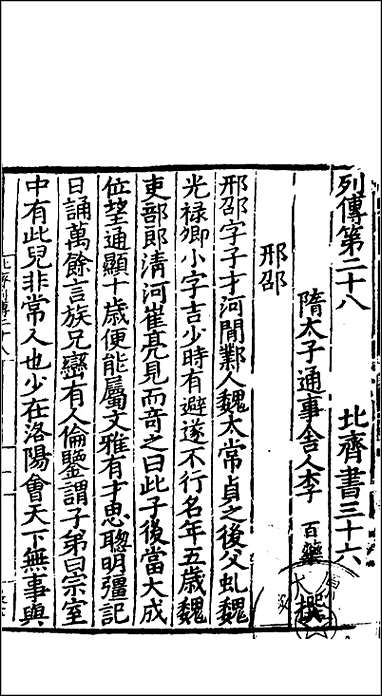 列傳第二十八 北齊書三十六
隋太子通事舍人李 百藥 撰
邢邵
邢邵字子才河間鄚人魏太常貞之後父虬魏
光祿卿小字吉少時有避遂不行名年五歲魏
吏部郎清河崔亮見而奇之曰此子後當大成
位望通顯十歲便能屬文雅有才思聰明彊記
日誦萬餘言族兄巒有人倫鑒謂子弟曰宗室
中有此兒非常人也少在洛陽會天下無事與